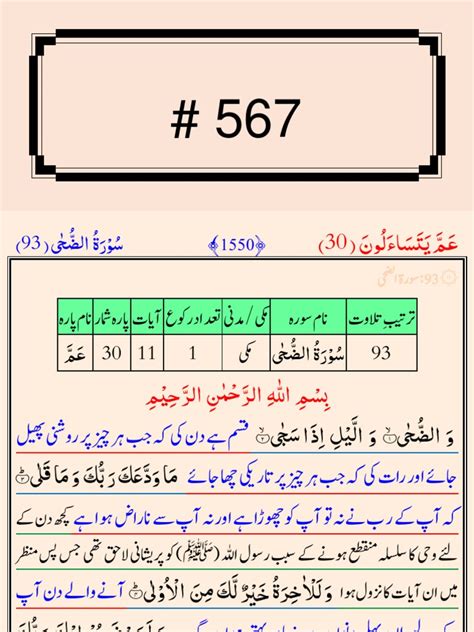 # 567
عَمَّ یَتَسَآءَلُونَ (30) ﴿1550﴾ سُوۡرَۃُ الضُّحٰی (93)
93: سورۃ الضحیٰ
ترتیبِ تلاوت نام سورہ مکی/مدنی تعداد رکوع آیات پارہ شمار نام پارہ
93 سُوۡرَۃُ الضُّحٰی مکی 1 11 30 عَمَّ
بِسْمِ اللّٰهِ الرَّحْمٰنِ الرَّحِیْمِ
وَ الضُّحٰىۙ۝۱ وَ الَّیْلِ اِذَا سَجٰىۙ۝۲ قسم ہے دن کی کہ جب ہر چیز پر روشنی پھیل
جائے اور رات کی کہ جب ہر چیز پر تاریکی چھا جائے مَا وَدَّعَكَ رَبُّكَ وَ مَا قَلٰىؕ۝۳
کہ آپ کے رب نے نہ تو آپ کو چھوڑا ہے اور نہ آپ سے ناراض ہوا ہے کچھ دن کے
لئے وحی کا سلسلہ منقطع ہونے کے سبب رسول اللہ (ﷺ) کو پریشانی لاحق تھی جس پس منظر
میں ان آیات کا نزول ہوا وَ لَلْاٰخِرَةُ خَیْرٌ لَّكَ مِنَ الْاُوْلٰىؕ۝۴ آنے والے دن آپ